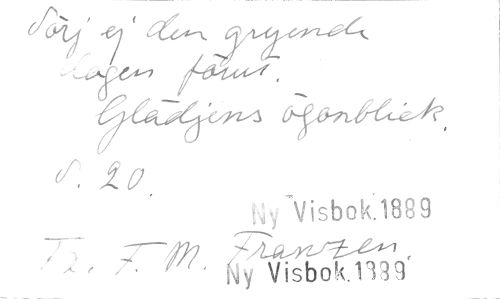 Sörj ej den gryende
dagen förut.
Glädjens ögonblick.
S. 20.
Ny Visbok. 1889
F. M. Franzen.
Ny Visbok. 1889